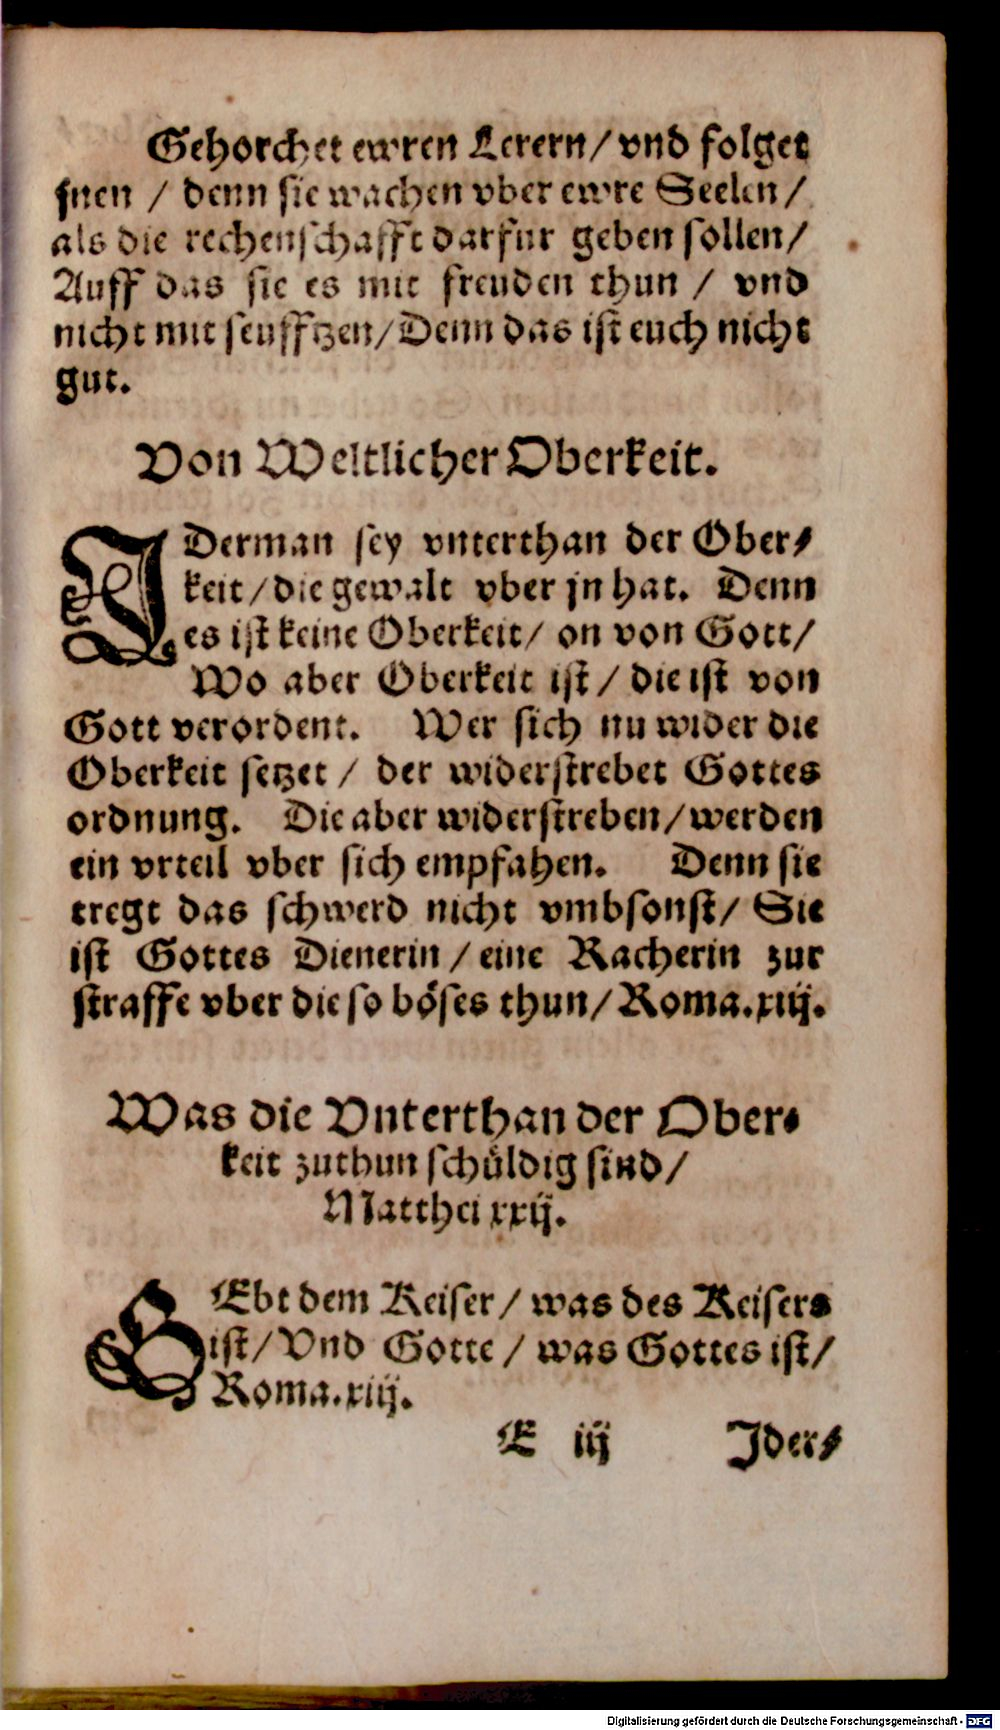 Gehorchet ewren Lerern/ vnd folget
jnen / denn sie wachen vber ewre Seelen /
als die rechenschafft darfur geben sollen/
Auff das sie es mit freuden thun / vnd
nicht mit seufftzen/ Denn das ist euch nicht
gut.
Von Weltlicher Oberkeit.
JDerman sey vnterthan der Ober⸗
keit / die gewalt vber jn hat. Denn
es ist keine Oberkeit/ on von Gott/
Wo aber Oberkeit ist / die ist von
Gott verordent. Wer sich nu wider die
Oberkeit setzet / der widerstrebet Gottes
ordnung. Die aber widerstreben/ werden
ein vrteil vber sich empfahen. Denn sie
tregt das schwerd nicht vmbsonst/ Sie
ist Gottes Dienerin / eine Racherin zur
straffe vber die so böses thun/ Roma.xiij.
Was die Vnterthan der Ober⸗
keit zuthun schüldig sind/
Matthei xxij.
GEbt dem Keiser / was des Keisers
ist/ Vnd Gotte / was Gottes ist/
Roma.xiij.
E iij Jder⸗
Digitalisierung gefördert durch die Deutsche Forschungsgemeinschaft - DFG